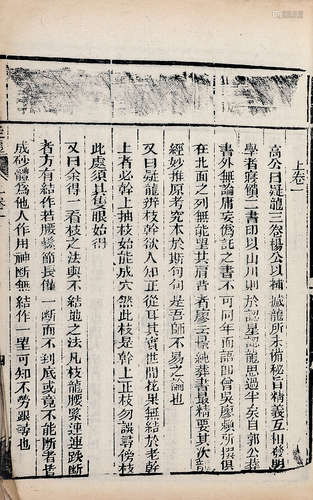 上卷一
高公曰疑龍三卷楊公以補撼龍所未備秘旨精義互相發明
學者寢饋二書印以山川則於認星認龍思過半矣自郭公葬
書外無論庸妄僞託之書不可同年而語即曾吳廖賴所撰俱
在北面之列無能望其肩背者廖云最純葬書最精要其次說
經妙推原考究本於斯句句是吾師不易之論也
又曰疑龍辨枝幹欲人知正從耳其實世間花果無結於老幹
上者必幹上抽枝始能成穴然此枝是幹上正枝勿誤尋傍枝
此處須具隻眼始得
又曰余得一看枝之法與不結地之法凡枝龍腰緊連連跌斷
者方有結作若腰懶節長僅一斷而不到底或竟不能斷者皆
成砂體爲他人作用神斷無結作一望可知不勞跟尋也